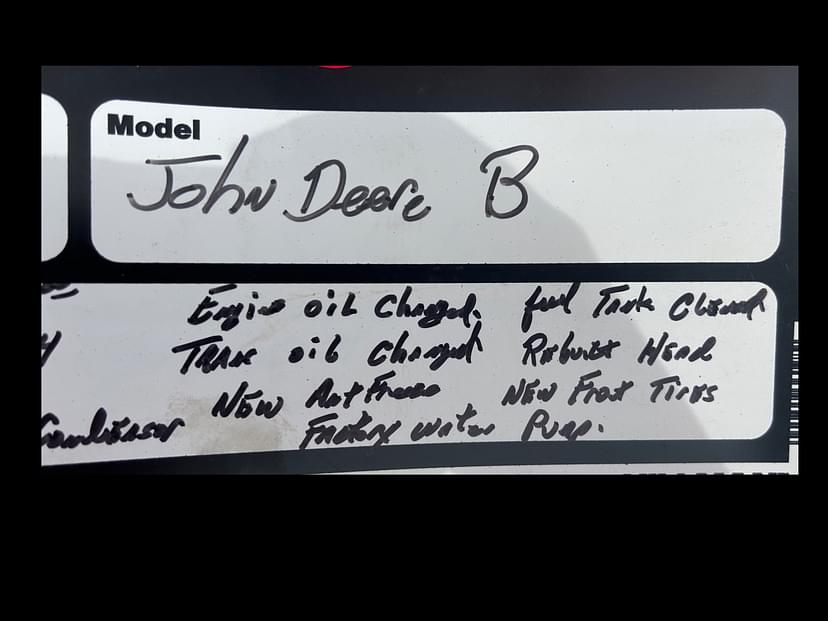 Model
John Deere B
Engine oil Changed. fuel Tank Cleaned
Tran oil Changed Rebuilt Head
New Antfreeze New Front Tires
Condensor Factory water Pump.